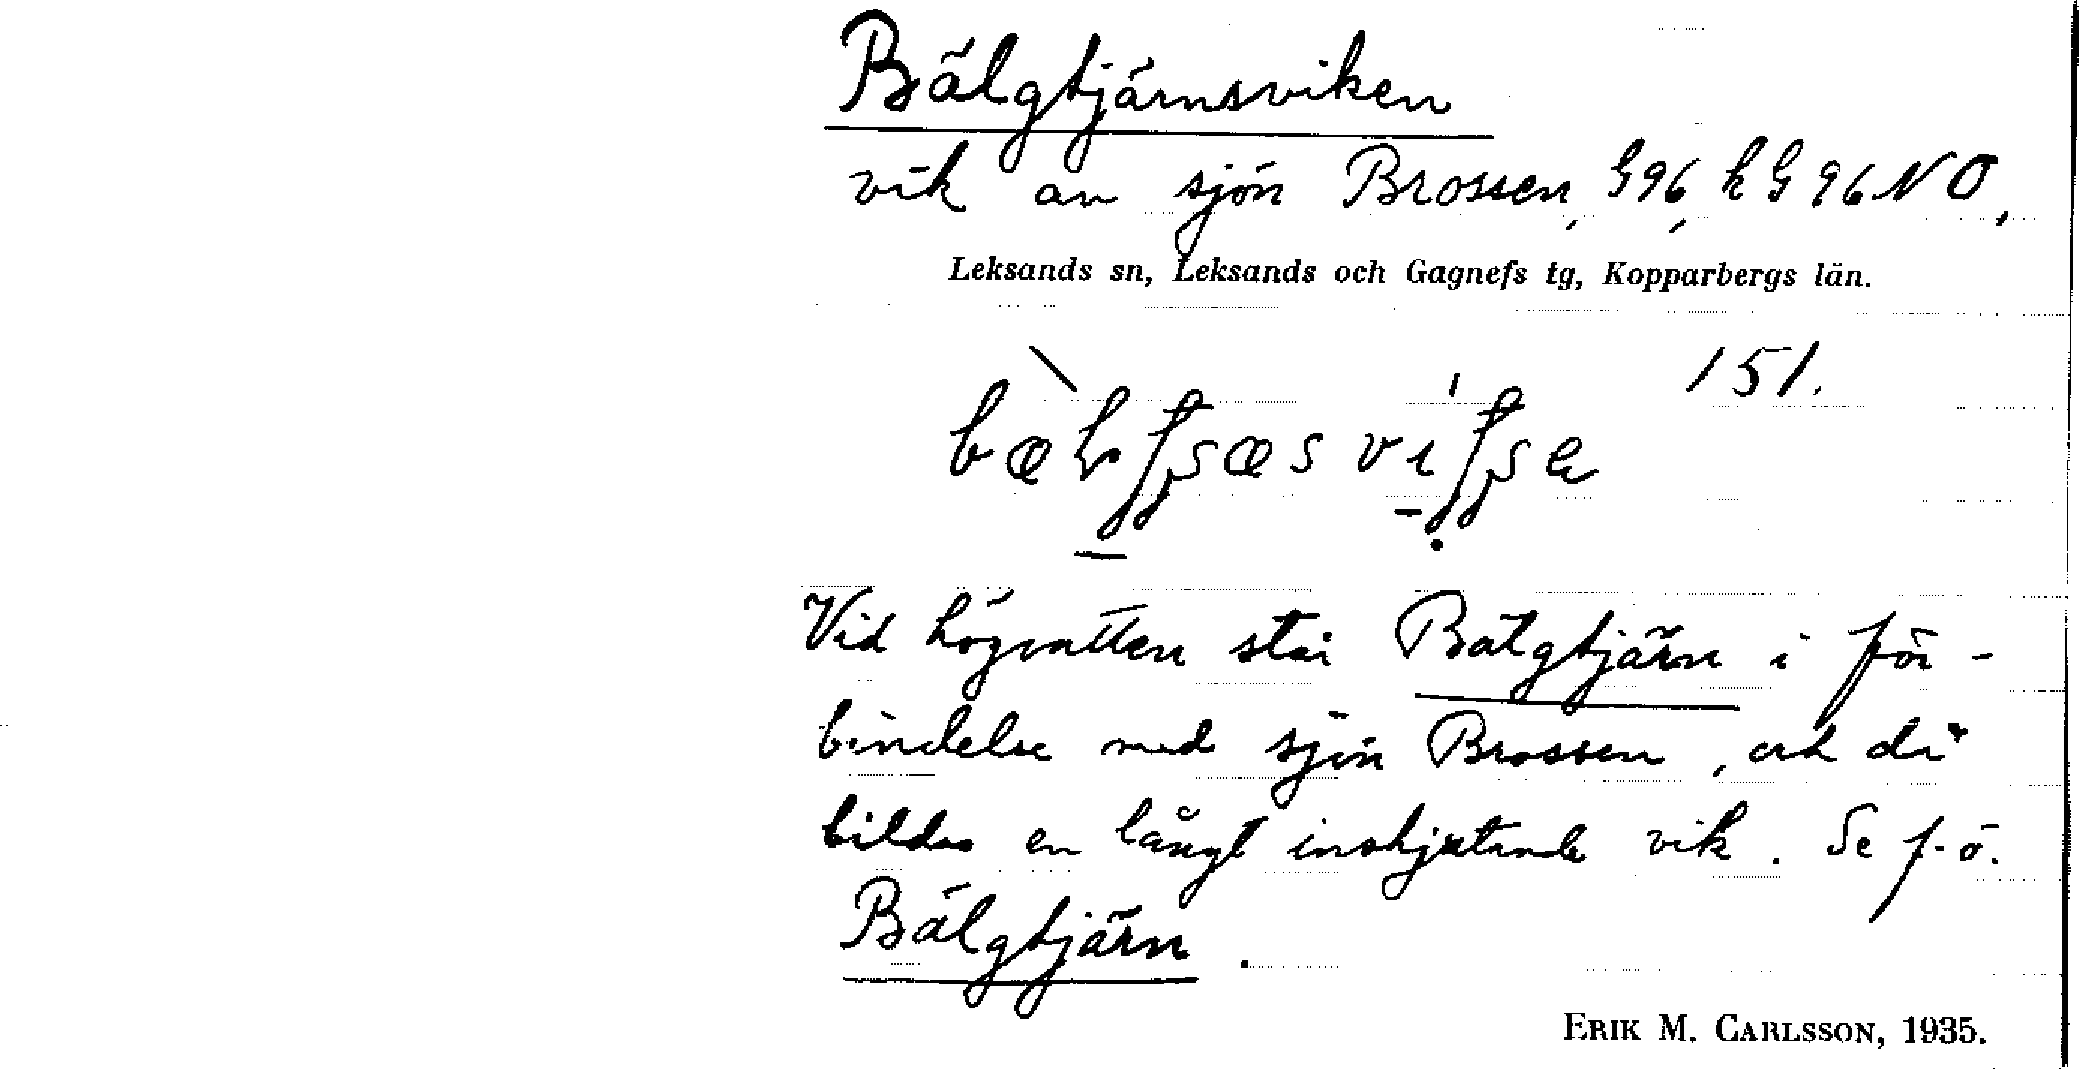 Bälgtjärnsviken
vik av sjön Brossen, G96, h G 96 NO,
Leksands sn, Leksands och Gagnefs tg, Kopparbergs län.
151.
Vid högvatten står Bälgtjärn i för-
bindelse med sjön Brossen, och då
bildas en långt inskjutande vik. Se f.ö.
Bälgtjärn.
ERIK M. CARLSSON, 1935.